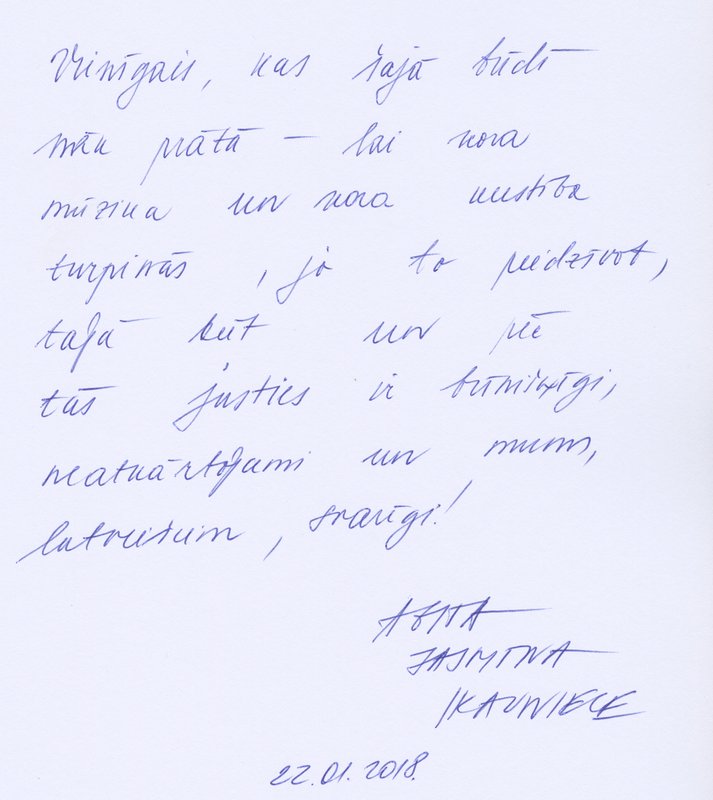 Vienīgais, kas šajā brīdī
nāk prātā — lai kora
mūzika un kora kustība
turpinās, jo to piedzīvot,
tajā būt un pie
tās justies ir brīnišķīgi,
neatkārtojami un mums,
latviešiem, svarīgi!
JASMINA
IKAUNIECE
22.01.2018.